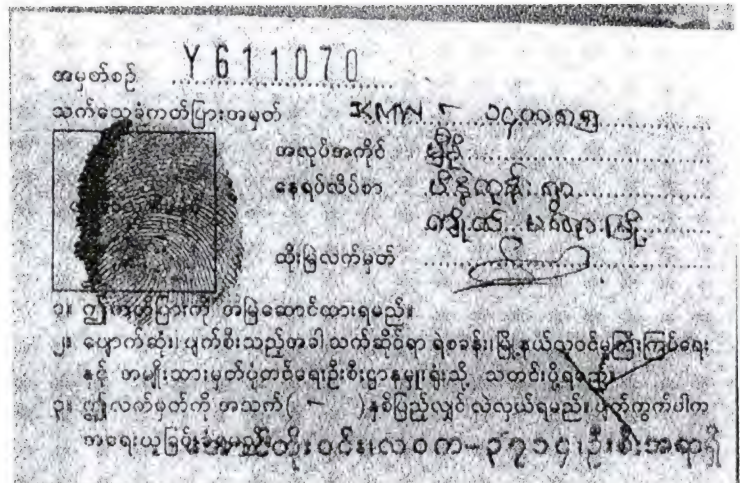 အမှတ်စဉ် Y 611070
သက်သေခံကတ်ပြားအမှတ် KMN
အလုပ်အကိုင် မှီခို
နေရပ်လိပ်စာ
ထိုးမြဲလက်မှတ်
၁။ ဤကတ်ပြားကို အမြဲဆောင်ထားရမည်။
၂။ ပျောက်ဆုံး၊ ပျက်စီးသည့်အခါ သက်ဆိုင်ရာ ရဲစခန်း၊ မြို့နယ်လူဝင်မှုကြီးကြပ်ရေး
နှင့် အမျိုးသားမှတ်ပုံတင်ရေးဦးစီးဌာနမှူးရုံးသို့ သတင်းပို့ရမည်။
၃။ ဤလက်မှတ်ကို အသက် ( – ) နှစ်ပြည့်လျှင် လဲလှယ်ရမည်။ ပျက်ကွက်ပါက
အရေးယူခြင်းခံရမည်။ တိုးဝင်း၊ လဝက-၃၇၁၄၊ ဦးစီးအရာရှိ